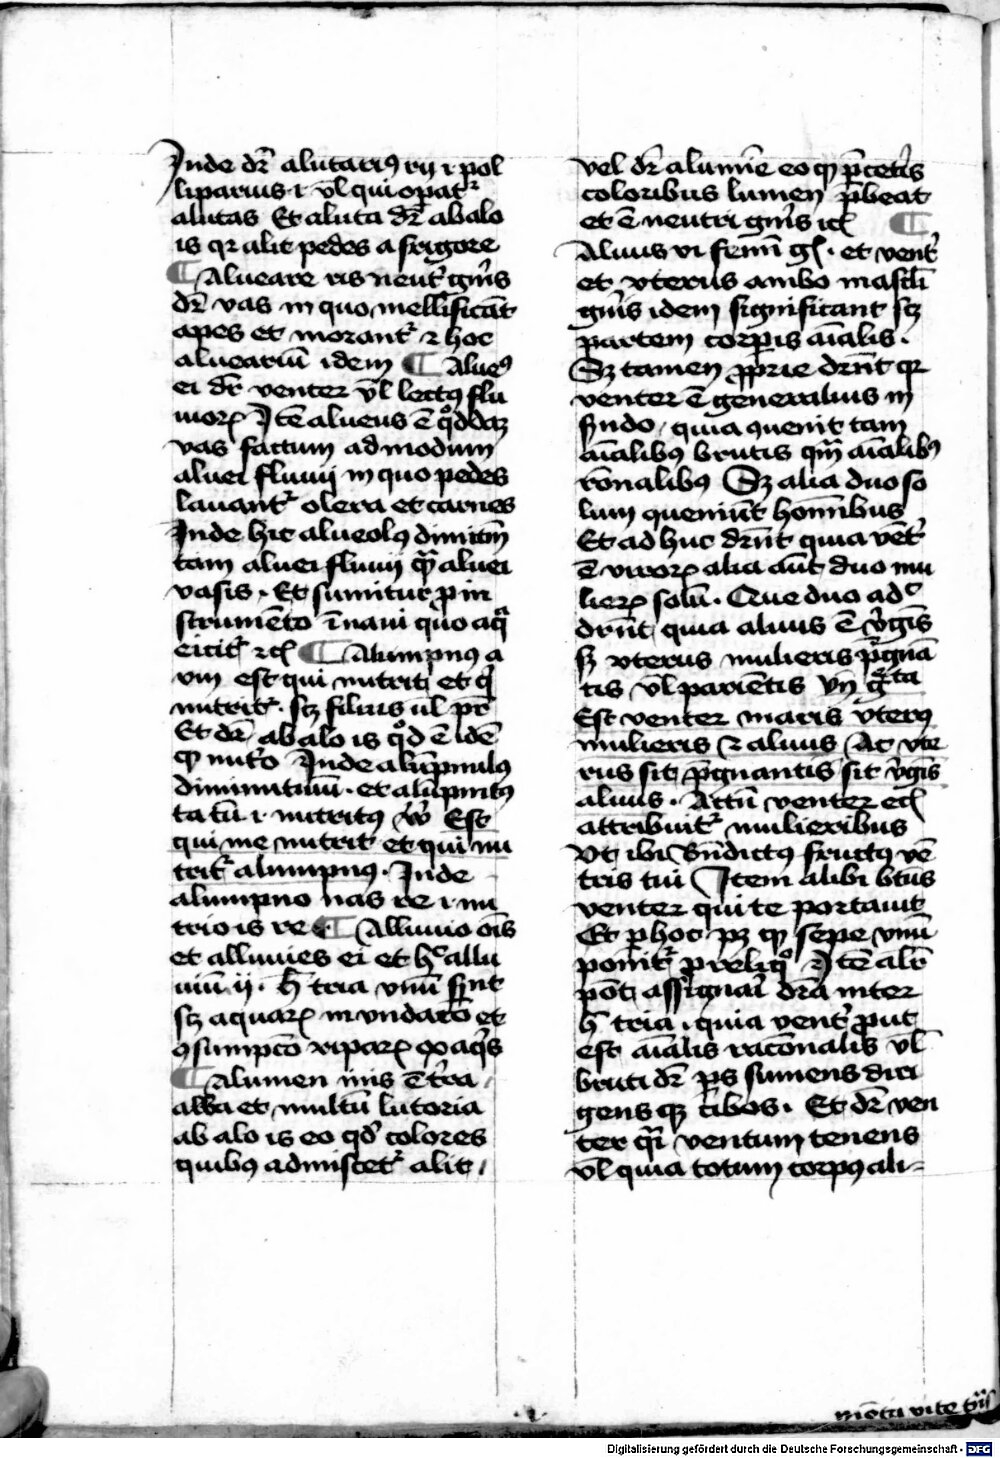 Inde dr̄ alutariꝰ rij ·i· pol
liparius ·i· vl̄ qui opat᷑
alutas Et aluta dr̄ ab alo
is qr alit pedes a frigore
¶ Alueare ris neut᷑ gn̄is
dr̄ vas in quo mellificāt
apes et morant᷑ ⁊ hoc
aluearium idem ¶ Alueꝰ
ei dr̄ venter vl̄ lectꝰ flu
uioꝝ Itē alueus ē qͦddaꝫ
vas factum ad modum
aluei fluuij in quo pedes
lauant᷑ olera et carnes
Inde hic alueolꝰ dimītm̄
tam aluei fluuij qᷓ aluei
vasis · Et sumitur ꝓ in
strumēto ī naui quo aqᷓ
eicit᷑ ⁊cꝭ ¶ Alumpnꝰ a
um est qui nutrit et qͥ
nutrit᷑ · sꝫ filius ul̄ pr̄
Et dr̄ ab alo is qͦd ē idē
ꝙ nut̓o Inde alūpnulus
diminitiuū · et alūpnitꝰ
ta tū ·i· nutritꝰ Est
qui me nutrit et qui nu
trit᷑ alumpnꝰ · Inde
alumpno nas re ·i· nu
trio is re ¶ Alluuio oīs
et alluuies ei et hͨ allu
uiū ij · h̄ tria vnū sūt
sꝫ aquaꝝ inundacō et
ꝯsumpcō ripaꝝ ex aqͥs
¶ Alumen inis ē t̓ra
alba et multū lutoria
ab alo is eo qd̓ colores
quibꝰ admiscet᷑ alit
vel dr̄ alumīe eo ꝙ p̄cet̓is
coloribus lumen p̄beat
et ē neutri gn̄is ⁊cꝭ ¶
Aluus vi femī gꝭ · et vent̓
et vterus ambo mascl̄i
gn̄is idem significant sꝫ
partem corpis aīalis ·
Sꝫ tamen ꝓprie drn̄t qr
venter ē generalius in
sn̄do quia ꝯuenit tam
aīalibꝰ brutis qm̄ aīalibꝰ
rōnalibꝰ Sꝫ alia duo so
lum ꝯueniūt homībus
Et ad huc drn̄t quia vēt̓
ē viroꝝ alia aūt duo mu
lieꝝ solū · Que duo adͨ
drn̄t quia aluus ē v̓gīs
sꝫ vterus mulieris p̄gnā
tis vl̄ pariētis vn̄ gͣta
Est venter maris vterꝰ
mulieris ⁊ aluus Ac vte
rus sit p̄gnantis sit v̓gīs
aluus · Attn̄ venter ecꝭ
attribuit᷑ mulieribus
Vt ibi Bn̄dictꝰ fructꝰ vē
tris tui Item alibi btūs
venter qui te portauit
Et ꝑ hoc pꝫ ꝙ sepe vnū
ponit᷑ ꝓ reliqͦ Itē alr̄
pōt assignari dr̄a inter
h̄ tria · quia vent̓ put
est aīalis racōnalis vl̄
bruti dr̄ ps sumens diri
gens qꝫ cibos · Et dr̄ ven
ter qͣi ventum tenens
vl̄ quia totum corpꝰ ali=
Digitalisierung gefördert durch die Deutsche Forschungsgemeinschaft - DFG